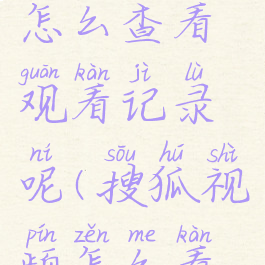 怎么查看
guān kàn jì lù
观看记录
ní sōu hú shì
呢(搜狐视
pín zěn me kàn
频怎么看